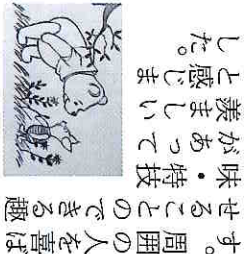 す。周囲の人を喜ば
せることのできる趣
味・特技
があって
羨ましい
と感じま
した。